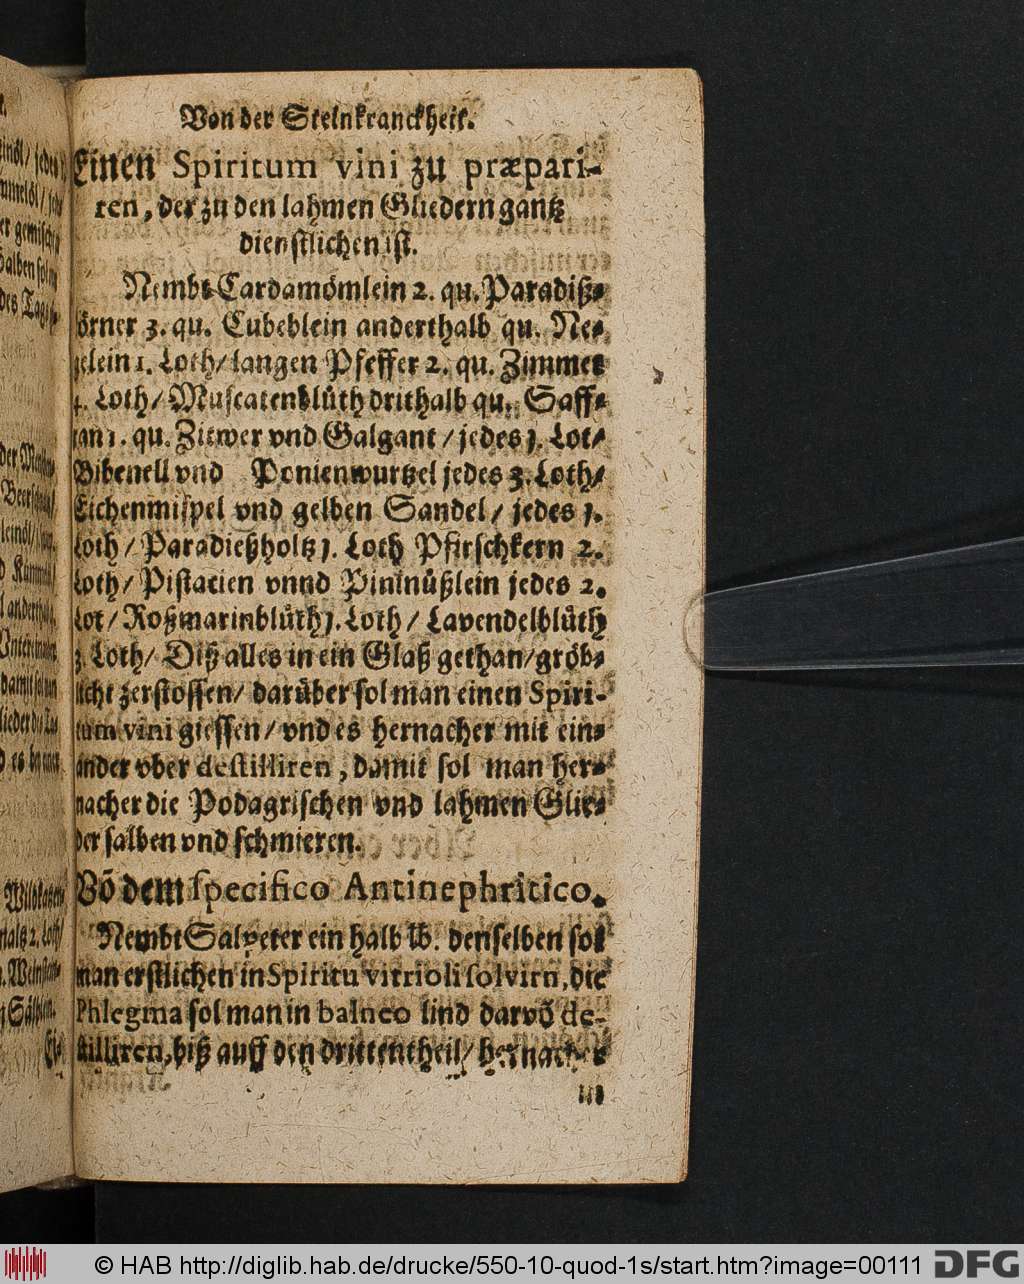 Von der Steinkranckheit.
Einen Spiritum vini zu præpari-
ren, der zu den lahmen Gliedern gantz
dienstlichen ist.
Nembt Cardamömlein 2. qu. Paradiß-
körner 3. qu. Cubeblein anderthalb qu. Ne-
gelein 1. Loth/ langen Pfeffer 2. qu. Zimmet
1. Loth/ Muscatenblůth drithalb qu. Saff-
ran 1. qu. Zitwer vnd Galgant / jedes j. Lot/
Bibenell vnd Ponienwurtzel jedes 3. Loth/
Eichenmispel vnd gelben Sandel / jedes j.
Loth / Paradießholtz j. Loth Pfirschkern 2.
Loth/ Pistacien vnnd Pininůßlein jedes 2.
Lot / Roßmarinblůth j. Loth / Lavendelblůth
3. Loth/ Diß alles in ein Glaß gethan/ gröb-
licht zerstossen/ darůber sol man einen Spiri-
tum vini giessen / vnd es hernacher mit ein-
ander vber destilliren, damit sol man her-
nacher die Podagrischen vnd lahmen Glie-
der salben vnd schmieren.
Võ dem specifico Antinephritico.
Nembt Salpeter ein halb lb. denselben sol
man erstlichen in Spiritu vitrioli solvirn, die
Phlegma sol man in balneo lind darvõ de-
stilliren, biß auff den drittentheil/ hernacher
© HAB http://diglib.hab.de/drucke/550-10-quod-1s/start.htm?image=00111
DFG